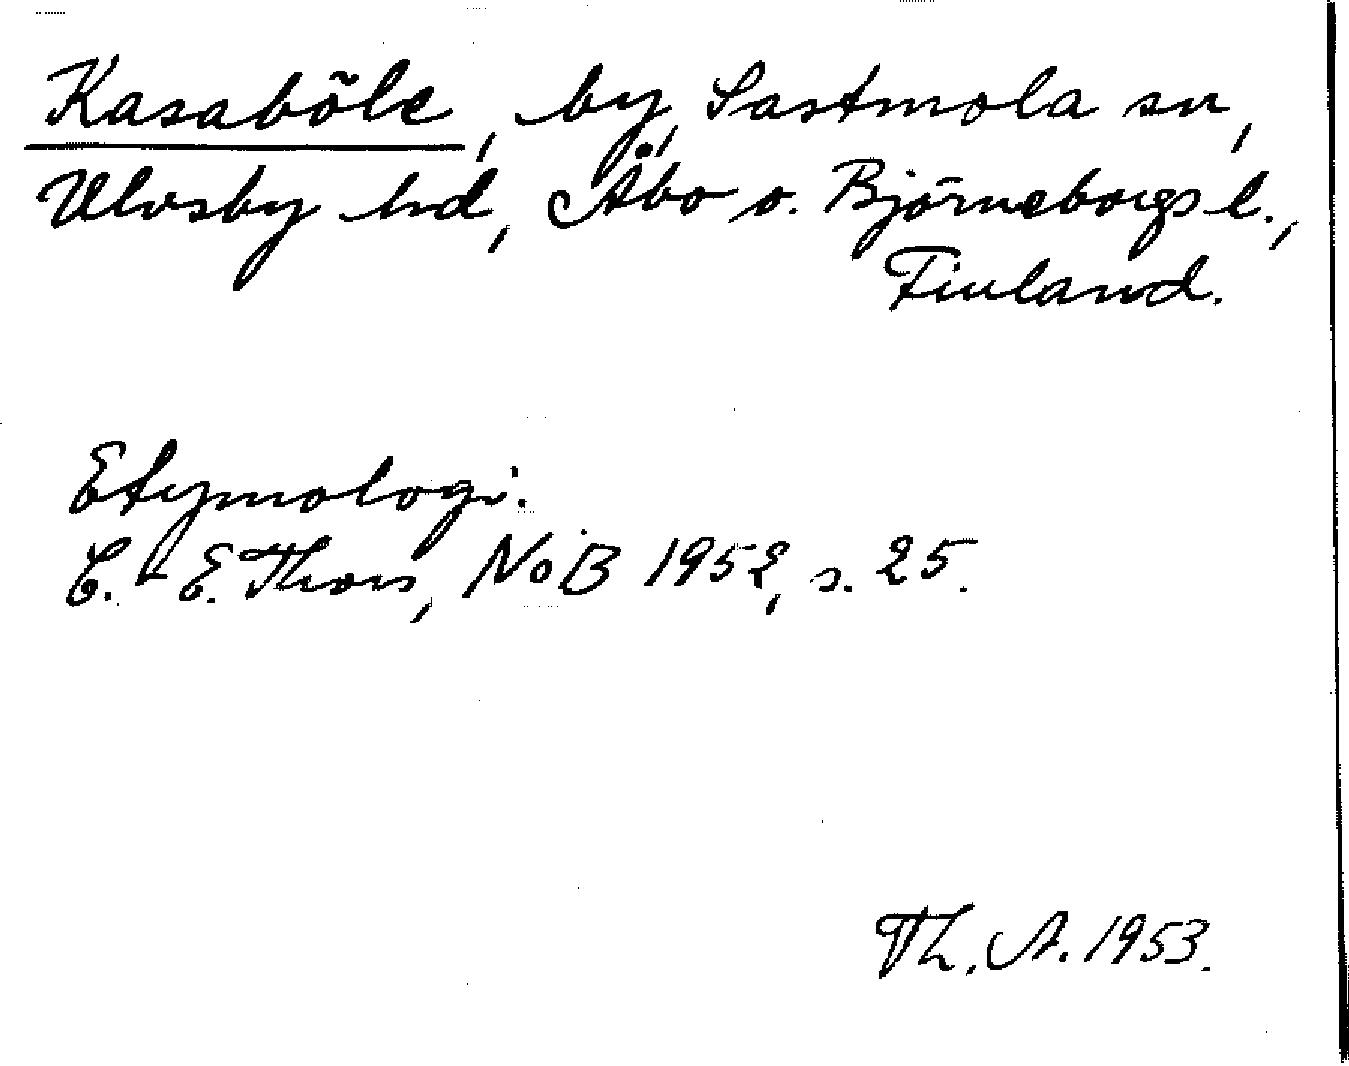 Kasaböle, by, Sastmola sn,
Ulvsby hd, Åbo o. Björneborgs l.,
Finland.
Etymologi.
C.-E. Thors, NoB 1952, s. 25.
Th. A. 1953.